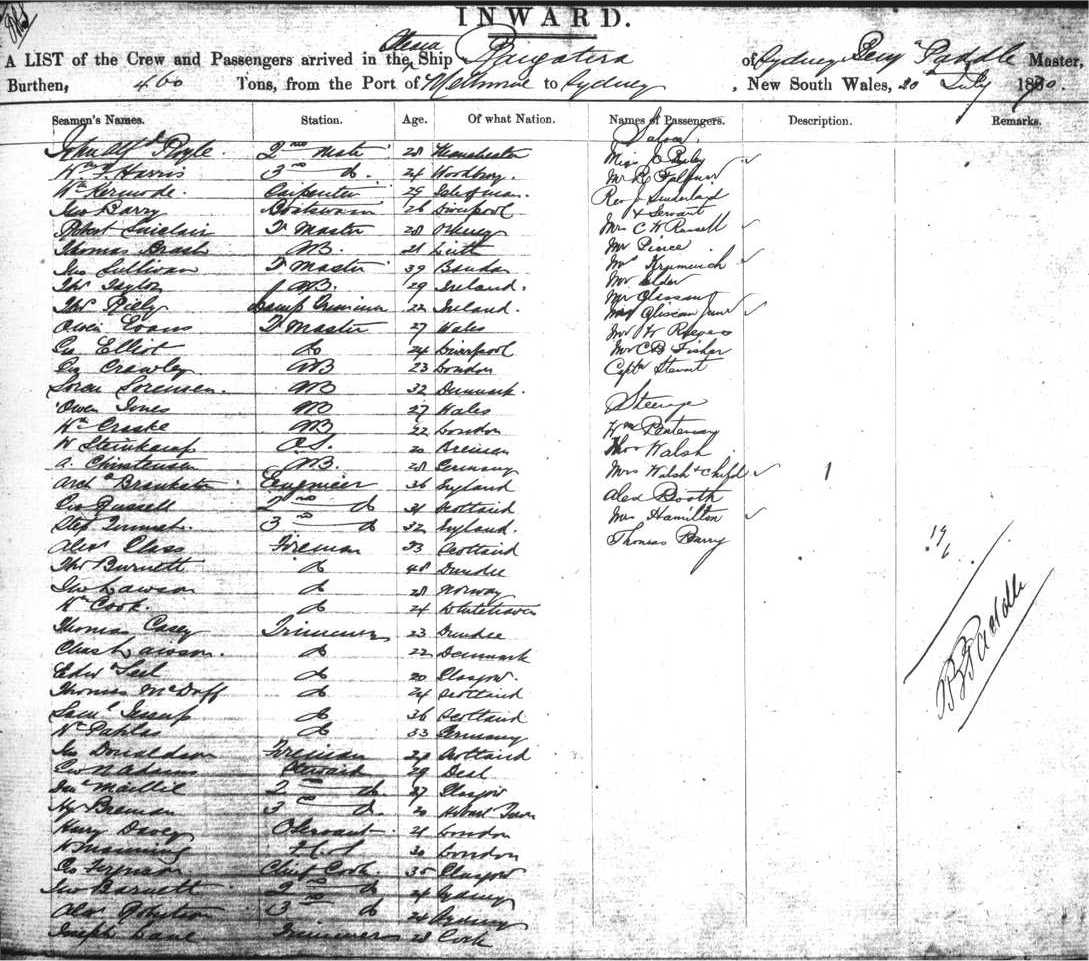 INWARD.
A LIST of the Crew and Passengers arrived in the Ship Rangatira of Sydney, Benj Paddle Master,
Burthen, 460 Tons, from the Port of Melbourne to Sydney, New South Wales, 20 July 1870.
Seamen's Names. Station. Age. Of what Nation. Names of Passengers. Description. Remarks.
Saloon
2nd Mate 28 Manchester
Wm F Harris 3rd do. 24
Wm Kermode. Carpenter 29 Isle of man.
Barry Boatswain 26 Liverpool
Robert Sinclair Master 28 Orkney
Thomas Brash AB. 21 Leith
Jno Sullivan Master 39 Bandon
Thos Taylor AB. 29 Ireland.
Thos Riely Lamp Trimmer 22 Ireland.
Owen Evans Master 27 Wales
Geo Elliot do 24 Liverpool
Geo Crawley AB 23 London
Soren Sorensen. AB 32 Denmark.
Owen Jones AB 27 Wales
Wm Croske AB 22 London
W Steinkamp O.S. 20 Bremen
A. Christensen AB. 28 Germany
Archd Engineer 36 England
Geo Russell 2nd do 31 Scotland
3rd do 32 England.
Alex Class Fireman 33 Scotland
Thos Burnett do 48 Dundee
Jno Lawson do 28 Norway
Wm Cook. do 24 Whitehaven
Thomas Casey Trimmer 23 Dundee
Chas do 22 Denmark
Edwd Teel do 20 Glasgow.
Thomas McDuff do 24 Scotland
Saml Jessup do 36 Scotland
Wm Pahlas do 33 Germany
Jno Donaldson Fireman 29 Scotland
Geo N Adams Steward 29 Deal
2nd do 27 Glasgow
Hy Brennan 3rd do. 20 Hobart Town
Harry Davey Servant 21 London
W Manning 30 London
Geo Ferguson Chief Cook 35 Glasgow
Jno Barnett 2nd do 24 Sydney
Alex Robertson 3rd do 24 Sydney
Joseph Lane Trimmer 28 Cork
Miss E Bayly
Mr R
Rev J Sunderland
& Servant
Mrs C W Russell
Mr Pierce
Mrs
Mr Elder
Mr Glissan
Glissan Junr
Mr W Rogers
Mr C B Fisher
Captn Stewart
Steerage
Wm
Thos Walsh
Mrs Walsh & Child 1
Alex Booth
Mrs Hamilton
Thomas Barry
19
6
B Paddle